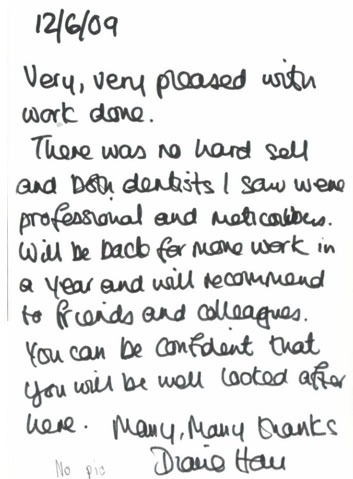 12/6/09
Very, very pleased with
work done.
There was no hard sell
and both dentists I saw were
professional and meticulous.
Will be back for more work in
a year and will recommend
to friends and colleagues.
You can be confident that
you will be well looked after
here. Many, Many thanks
No pic Diane